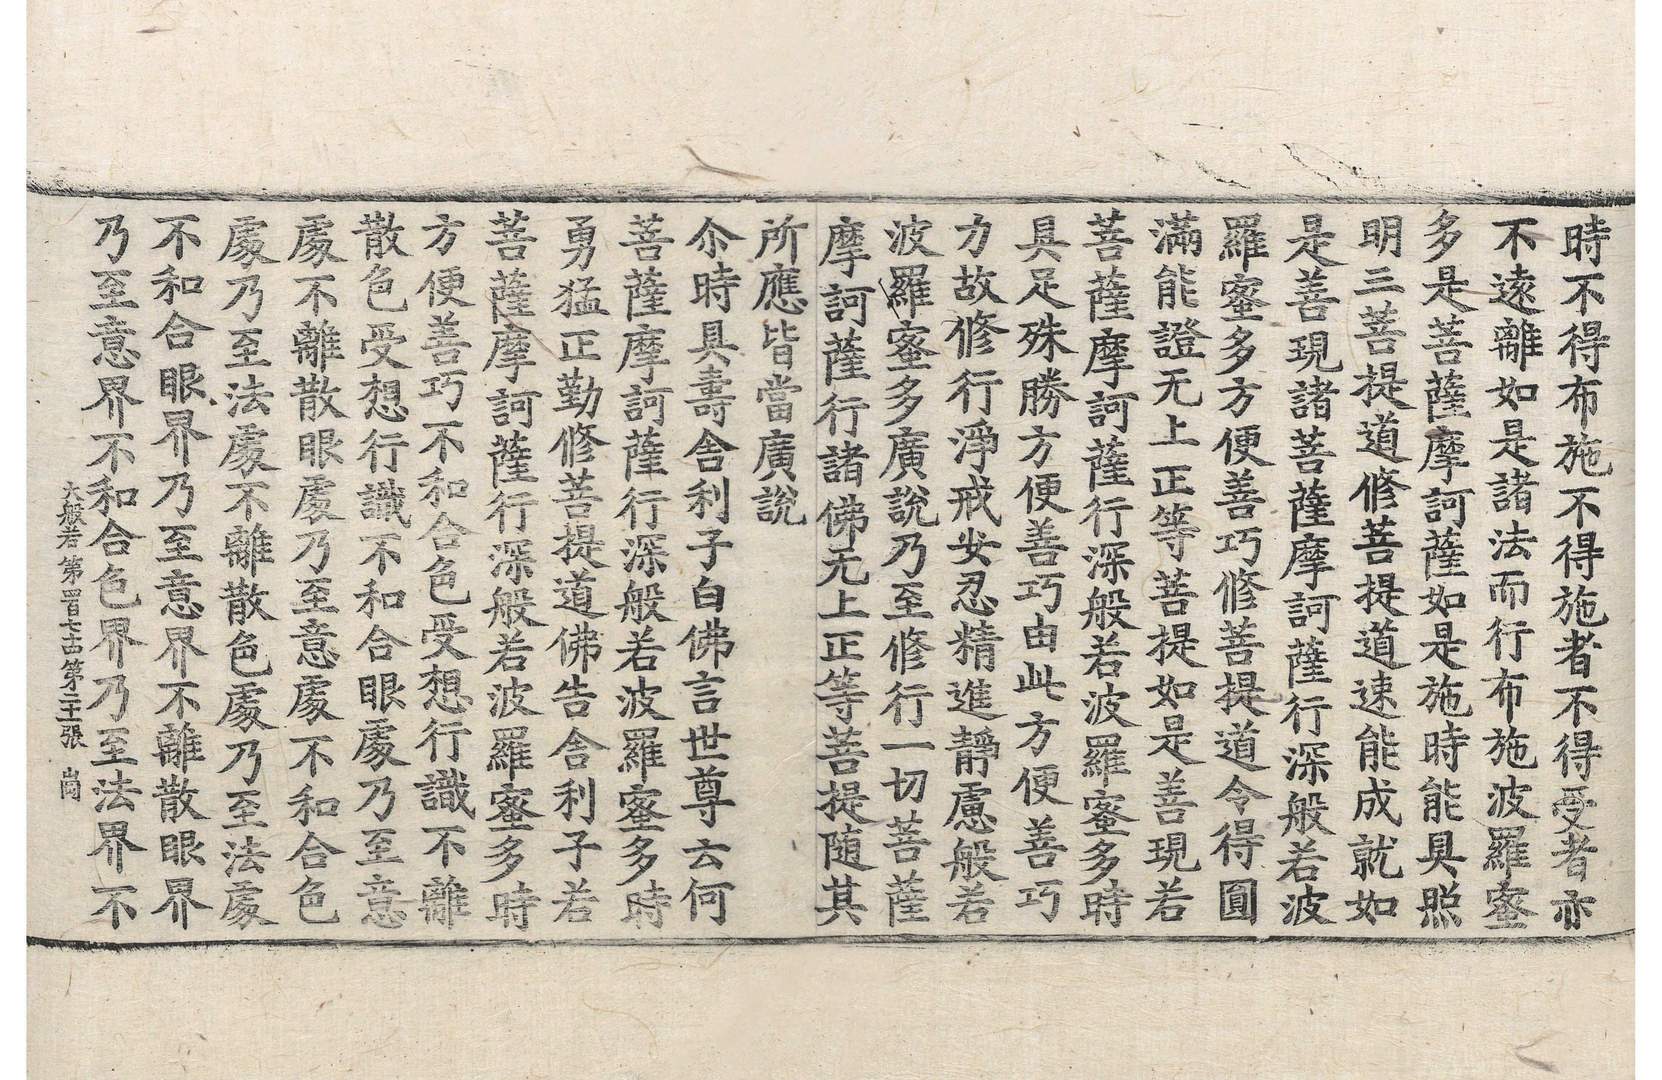 時不得布施不得施者不得受者亦
不遠離如是諸法而行布施波羅蜜
多是菩薩摩訶薩如是施時能具照
明三菩提道修菩提道速能成就如
是善現諸菩薩摩訶薩行深般若波
羅蜜多方便善巧修菩提道令得圓
滿能證无上正等菩提如是善現若
菩薩摩訶薩行深般若波羅蜜多時
具足殊勝方便善巧由此方便善巧
力故修行淨戒安忍精進靜慮般若
波羅蜜多廣說乃至修行一切菩薩
摩訶薩行諸佛无上正等菩提隨其
所應皆當廣說
尒時具壽舍利子白佛言世尊云何
菩薩摩訶薩行深般若波羅蜜多時
勇猛正勤修菩提道佛告舍利子若
菩薩摩訶薩行深般若波羅蜜多時
方便善巧不和合色受想行識不離
散色受想行識不和合眼處乃至意
處不離散眼處乃至意處不和合色
處乃至法處不離散色處乃至法處
不和合眼界乃至意界不離散眼界
乃至意界不和合色界乃至法界不
大般若第四百七十四第二十張 崗